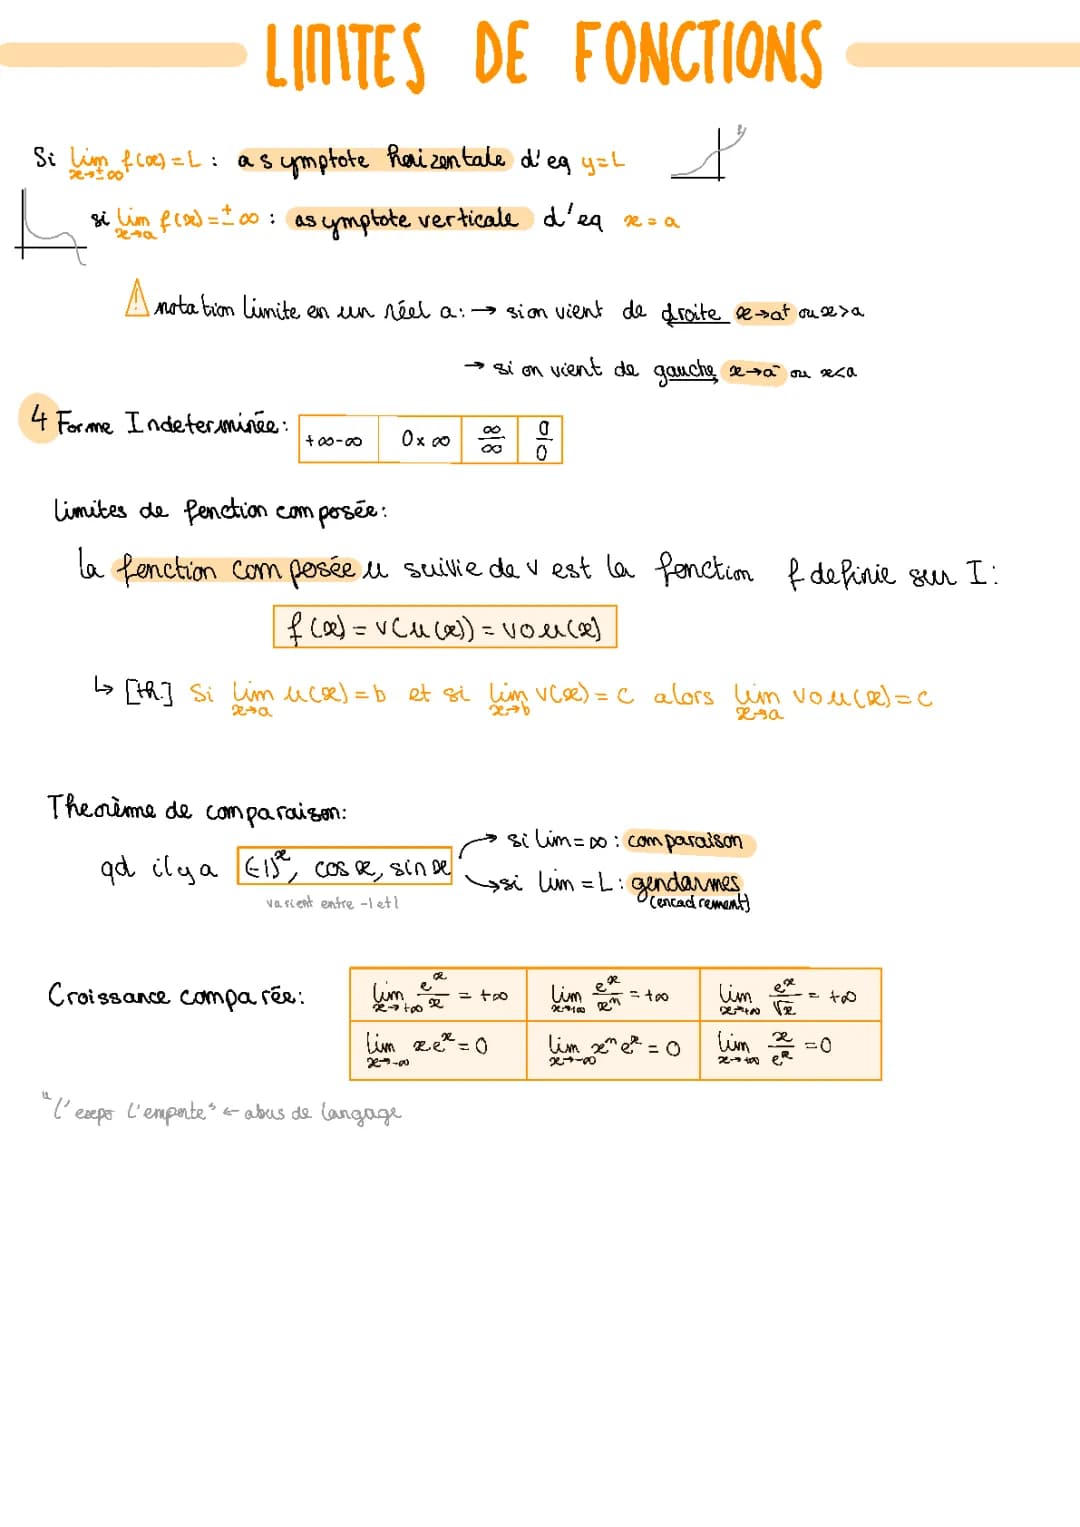 LIMITES DE FONCTIONS
Si lim f(x) = L : asymptote horizontale d'eq y=L
x→±∞
si lim f(x) = ±∞ : asymptote verticale d'eq x = a
x→a
⚠ notation limite en un réel a: → si on vient de droite x→a⁺ ou x>a
→ si on vient de gauche x→a⁻ ou x<a
4 Forme Indeterminée: +∞-∞ 0×∞ ∞/∞ 0/0
limites de fonction composée:
la fonction composée u suivie de v est la fonction f definie sur I:
f(x) = v(u(x)) = vou(x)
↳ [th.] Si lim u(x) = b et si lim v(x) = c alors lim vou(x) = c
x→a x→b x→a
Theorème de comparaison:
→ si lim = ∞ : comparaison
qd il y a (-1)ˣ, cos x, sin x
→ si lim = L : gendarmes
varient entre -1 et 1 (encadrement)
Croissance comparée: lim eˣ/x = +∞ lim eˣ/xⁿ = +∞ lim eˣ/√x = +∞
x→+∞ x→+∞ x→+∞
lim xeˣ = 0 lim xⁿeˣ = 0 lim x/eˣ = 0
x→-∞ x→-∞ x→+∞
"l'expo l'emporte" ← abus de langage